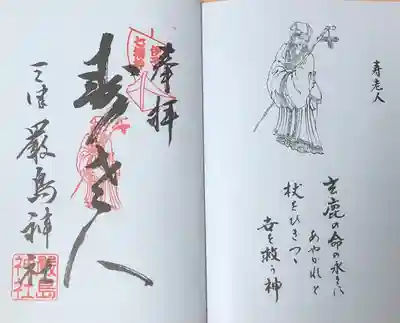 寿老人
玄鹿の命の永きに
あやかれと
杖をひきつゝ
世を救う神
奉拝
七福神
寿老人
三津厳島神社
厳島神社